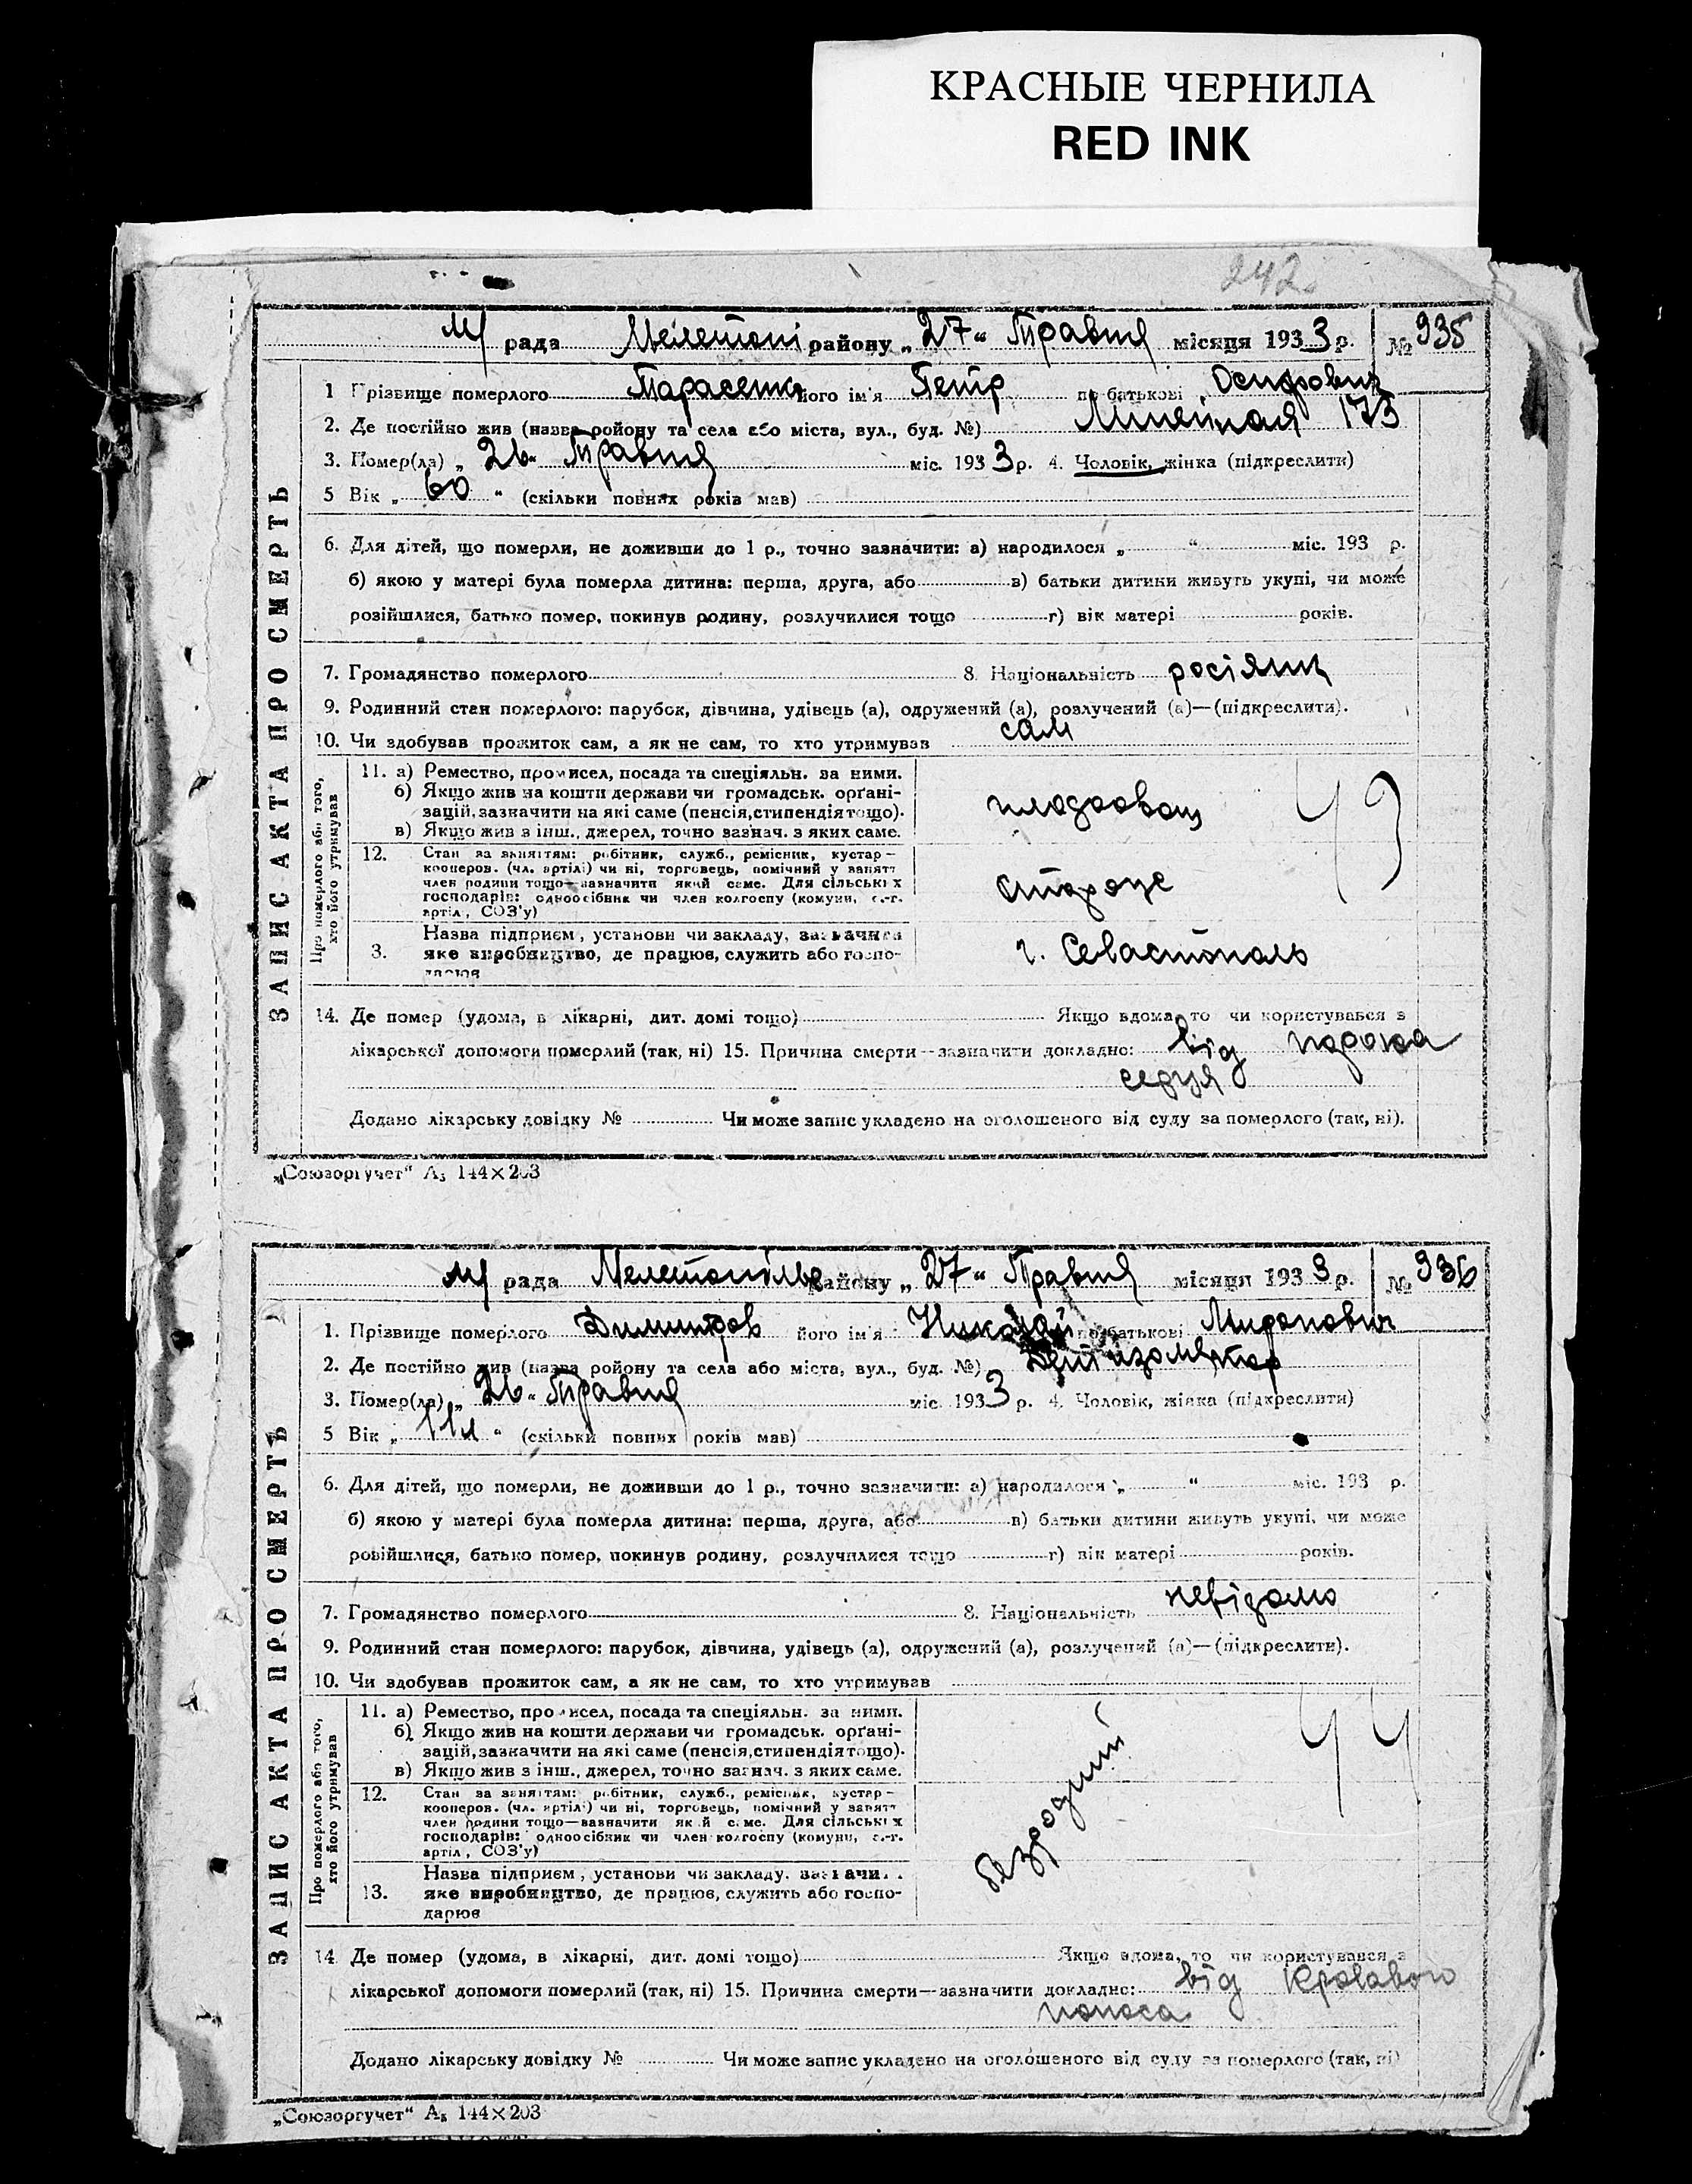 КРАСНЫЕ ЧЕРНИЛА
RED INK
242
м/ рада Мелетопі району „27“ Травня місяця 1933 р. № 935
ЗАПИС АКТА ПРО СМЕРТЬ
1 Прізвище померлого Тарасенко його ім'я Петр по батькові Осипович
2. Де постійно жив (назва ройону та села або міста, вул., буд. №) Линейная 173
3. Помер(ла) „26“ Травня міс. 1933 р. 4. Чоловік, жінка (підкреслити)
5 Вік „60“ (скільки повних років мав)
6. Для дітей, що померли, не доживши до 1 р., точно зазначити: а) народилося „ “ міс. 193 р.
б) якою у матері була померла дитина: перша, друга, або в) батьки дитини живуть укупі, чи може
розійшлися, батько помер, покинув родину, розлучилися тощо г) вік матері років.
7. Громадянство померлого 8. Національність росіянин
9. Родинний стан померлого: парубок, дівчина, удівець (а), одружений (а), розлучений (а)—(підкреслити).
10. Чи здобував прожиток сам, а як не сам, то хто утримував сам
Про померлого або того, хто його утримував
11. а) Ремество, промисел, посада та спеціяльн. за ними.
б) Якщо жив на кошти держави чи громадськ. орґані-
зацій, зазначити на які саме (пенсія, стипендія тощо).
в) Якщо жив з інш., джерел, точно зазнач. з яких саме.
43
12. Стан за заняттям: робітник, служб., ремісник, кустар—
кооперов. (чл. артілі) чи ні, торговець, помічний у занятт
член родини тощо—зазначити який саме. Для сільських
господарів: одноосібник чи член колгоспу (комуни, с.-г.
артіл, СОЗ'у)
сторож
3. Назва підприєм, установи чи закладу, зазначити
яке виробництво, де працює, служить або госпо-
дарює
г. Севастополь
14. Де помер (удома, в лікарні, дит. домі тощо) Якщо вдома, то чи користувався з
лікарської допомоги померлий (так, ні) 15. Причина смерти—зазначити докладно: від порока
серця
Додано лікарську довідку № Чи може запис укладено на оголошеного від суду за померлого (так, ні).
„Союзоргучет“ А₅ 144×203
м/ рада Мелетопільс району „27“ Травня місяця 1933 р. № 936
ЗАПИС АКТА ПРО СМЕРТЬ
1. Прізвище померлого Димитров його ім'я Николай по батькові Миронович
2. Де постійно жив (назва ройону та села або міста, вул., буд. №) Дет изолятор
3. Помер(ла) „26“ Травня міс. 1933 р. 4. Чоловік, жінка (підкреслити)
5 Вік „11л“ (скільки повних років мав)
6. Для дітей, що померли, не доживши до 1 р., точно зазначити: а) народилося „ “ міс. 193 р.
б) якою у матері була померла дитина: перша, друга, або в) батьки дитини живуть укупі, чи може
розійшлися, батько помер, покинув родину, розлучилися тощо г) вік матері років.
7. Громадянство померлого 8. Національність невідомо
9. Родинний стан померлого: парубок, дівчина, удівець (а), одружений (а), розлучений (а)—(підкреслити).
10. Чи здобував прожиток сам, а як не сам, то хто утримував
Про померлого або того, хто його утримував
11. а) Ремество, промисел, посада та спеціяльн. за ними.
б) Якщо жив на кошти держави чи громадськ. орґані-
зацій, зазначити на які саме (пенсія, стипендія тощо).
в) Якщо жив з інш., джерел, точно зазнач. з яких саме.
44
безродний
12. Стан за заняттям: робітник, служб., ремісник, кустар—
кооперов. (чл. артілі) чи ні, торговець, помічний у занятт
член родини тощо—зазначити який саме. Для сільських
господарів: одноосібник чи член колгоспу (комуни, с.-г.
артіл, СОЗ'у)
13. Назва підприєм, установи чи закладу, зазначи
яке виробництво, де працює, служить або госпо-
дарює
14. Де помер (удома, в лікарні, дит. домі тощо) Якщо вдома, то чи користувався з
лікарської допомоги померлий (так, ні) 15. Причина смерти—зазначити докладно: від кровавого
поноса
Додано лікарську довідку № Чи може запис укладено на оголошеного від суду за померлого (так, ні)
„Союзоргучет“ А₅ 144×203